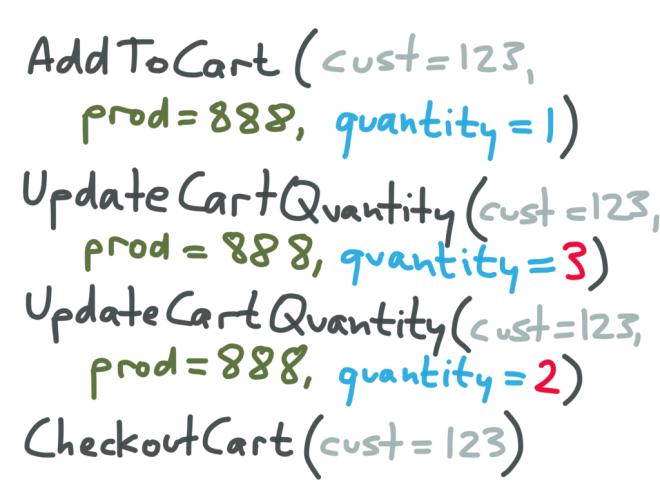 AddToCart (cust=123,
prod=888, quantity=1)
UpdateCartQuantity(cust=123,
prod=888, quantity=3)
UpdateCartQuantity(cust=123,
prod=888, quantity=2)
CheckoutCart(cust=123)